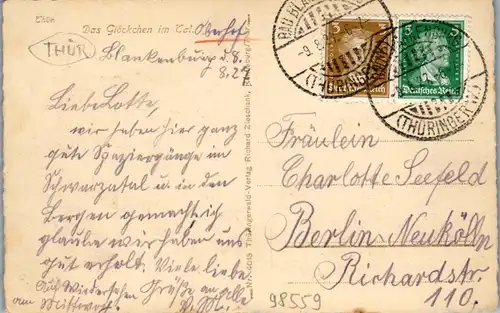 Thür.
Das Glöckchen im Tal. Oberhof
THÜR
Blankenburg d. 8.
8. 27
Liebe Lotte,
wir haben hier ganz
gute Speziergänge im
Schwarzatal u. in den
Bergen gemacht ich
glaube wir haben uns
gut erholt. Viele liebe
Grüße an alle
Auf Wiedersehen
am Mittwoch.
N. P. 4015 Thüringerwald-Verlag Richard Zieschank,
BAD BLANKENBURG
(THÜRINGERW.)
3
Deutsches Reich
5
Deutsches Reich
(THÜRINGERW.)
Fräulein
Charlotte Seefeld
Berlin Neukölln
Richardstr.
110.
98559